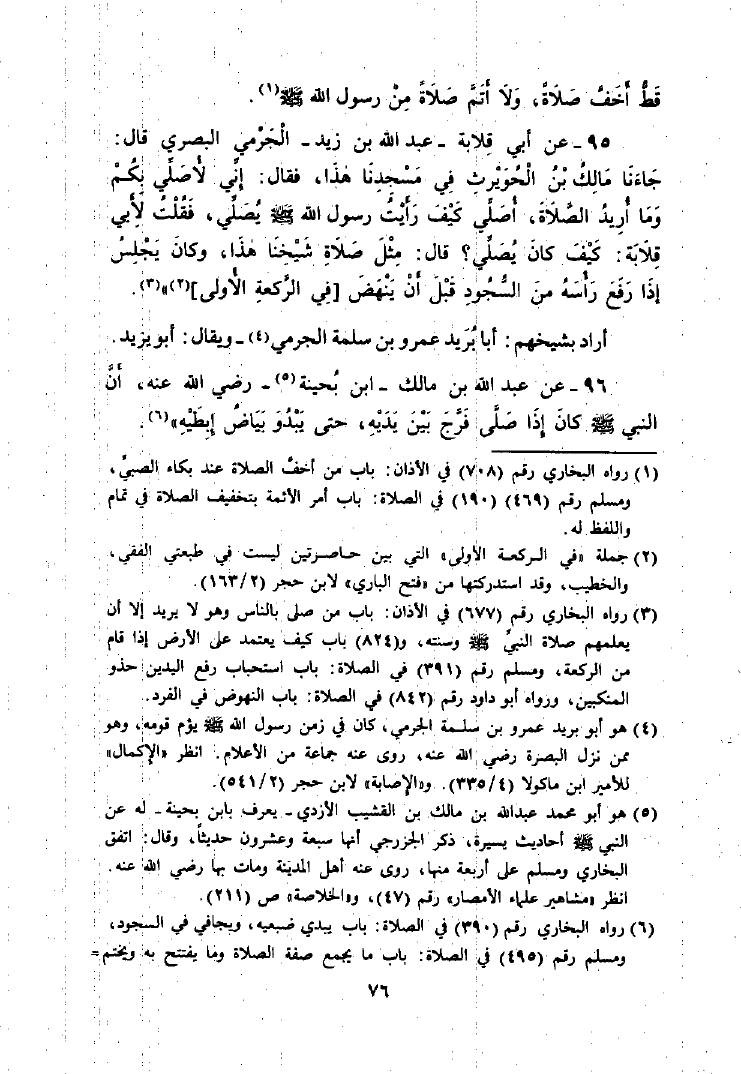 قَطُّ أَخَفَّ صَلَاةً، وَلَا أَتَمَّ صَلَاةً مِنْ رسول الله ﷺ(١).
٩٥ - عن أبي قلابة - عبد الله بن زيد - الْجَرْمي البصري قال:
جَاءَنَا مَالِكُ بْنُ الْحُوَيْرِثِ فِي مَسْجِدِنَا هٰذَا، فقال: إنِّي لَأُصَلِّي بِكُمْ
وَمَا أُرِيدُ الصَّلَاةَ، أُصَلِّي كَيْفَ رَأَيْتُ رسول الله ﷺ يُصَلِّي، فَقُلْتُ لِأَبِي
قِلَابَةَ: كَيْفَ كانَ يُصَلِّي؟ قال: مِثْلَ صَلَاةِ شَيْخِنَا هٰذَا، وكانَ يَجْلِسُ
إذَا رَفَعَ رَأْسَهُ منَ السُّجُودِ قَبْلَ أَنْ يَنْهَضَ [فِي الرَّكعةِ الأُولى](٢)»(٣).
أراد بشيخهم: أبا بُرَيد عمرو بن سلمة الجرمي(٤) - ويقال: أبو يزيد.
٩٦ - عن عبد الله بن مالك - ابن بُحينة(٥) - رضي الله عنه، أَنَّ
النبي ﷺ كانَ إذَا صَلَّى فَرَّجَ بَيْنَ يَدَيْهِ، حتى يَبْدُوَ بَيَاضُ إبطَيْهِ»(٦).
(١) رواه البخاري رقم (٧٠٨) في الأذان: باب من أخفَّ الصلاة عند بكاء الصبيِّ،
ومسلم رقم (٤٦٩) (١٩٠) في الصلاة: باب أمر الأئمة بتخفيف الصلاة في تمام
واللفظ له.
(٢) جملة «في الركعة الأولى» التي بين حاصرتين ليست في طبعتي الفقي،
والخطيب، وقد استدركتها من «فتح الباري» لابن حجر (١٦٣/٢).
(٣) رواه البخاري رقم (٦٧٧) في الأذان: باب من صلى بالناس وهو لا يريد إلا أن
يعلمهم صلاة النبيِّ ﷺ وسنته، و(٨٢٤) باب كيف يعتمد على الأرض إذا قام
من الركعة، ومسلم رقم (٣٩١) في الصلاة: باب استحباب رفع اليدين حذو
المنكبين، ورواه أبو داود رقم (٨٤٢) في الصلاة: باب النهوض في الفرد.
(٤) هو أبو بريد عمرو بن سلمة الجرمي، كان في زمن رسول الله ﷺ يؤم قومه، وهو
ممن نزل البصرة رضي الله عنه، روى عنه جماعة من الأعلام. انظر «الإكمال»
للأمير ابن ماكولا (٣٣٥/٤). و«الإصابة» لابن حجر (٥٤١/٢).
(٥) هو أبو محمد عبدالله بن مالك بن القشيب الأزدي - يعرف بابن بحينة - له عن
النبي ﷺ أحاديث يسيرة، ذكر الجزرجي أنها سبعة وعشرون حديثاً، وقال: اتفق
البخاري ومسلم على أربعة منها، روى عنه أهل المدينة ومات بها رضي الله عنه.
انظر «مشاهير علماء الأمصار» رقم (٤٧)، و«الخلاصة» ص (٢١١).
(٦) رواه البخاري رقم (٣٩٠) في الصلاة: باب يبدي ضبعيه، ويجافي في السجود،
ومسلم رقم (٤٩٥) في الصلاة: باب ما يجمع صفة الصلاة وما يفتتح به ويختم =
٧٦